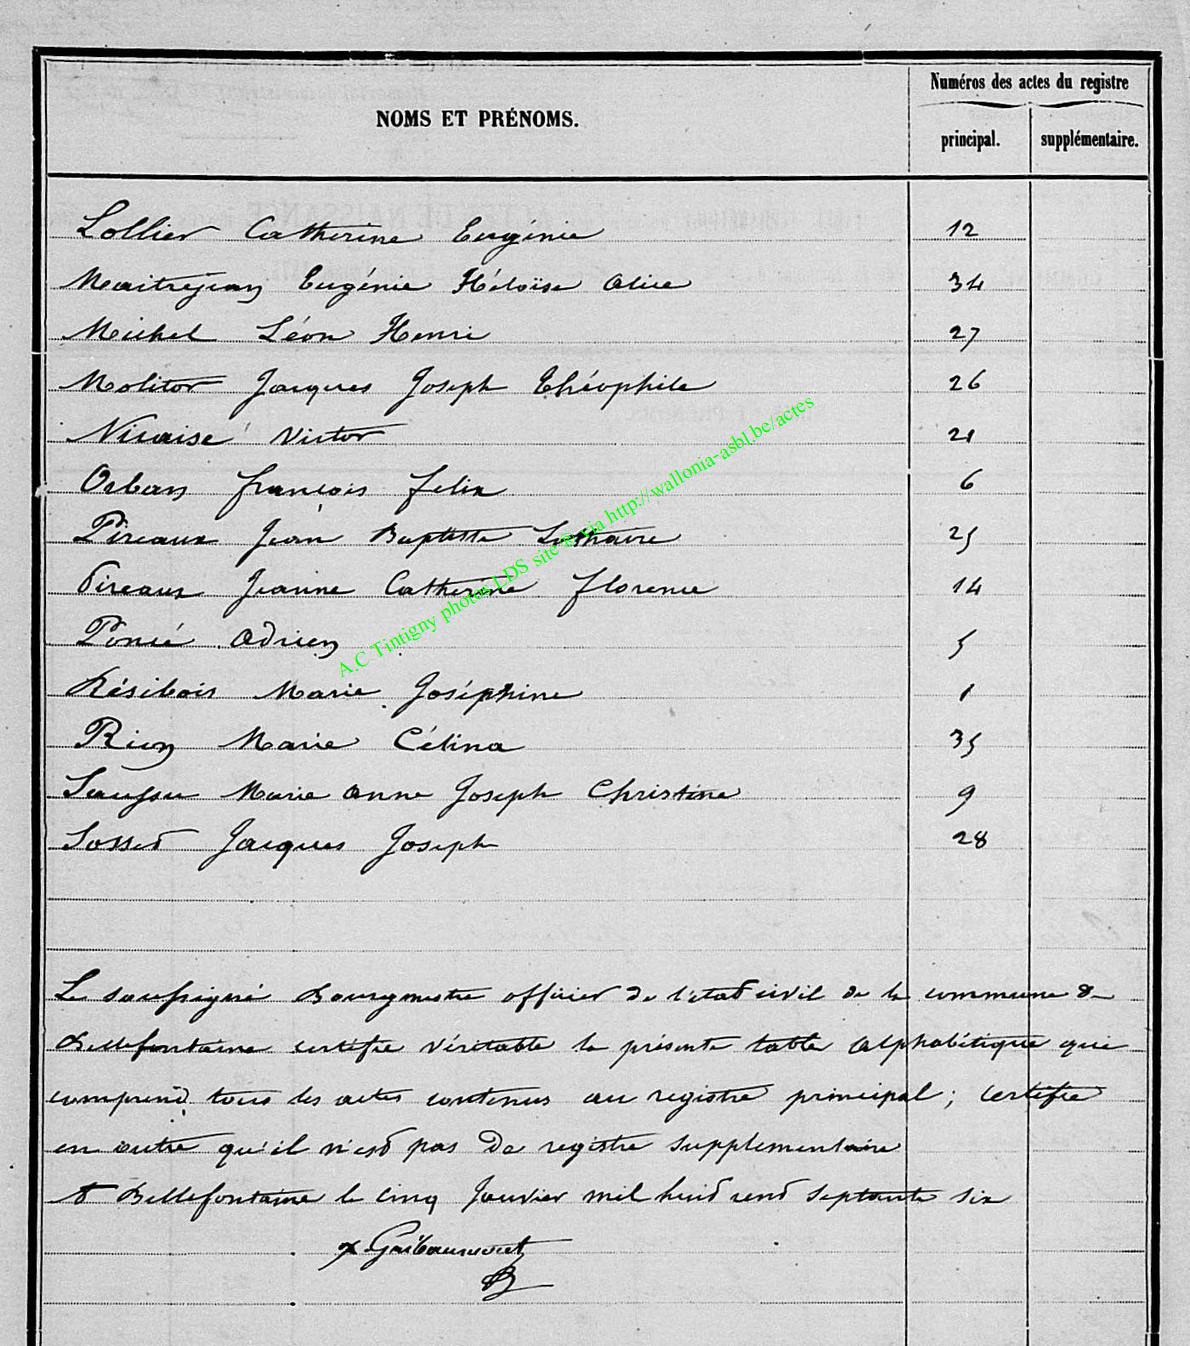 Numéros des actes du registre
NOMS ET PRÉNOMS.
principal. supplémentaire.
Lollier Catherine Eugénie 12
Maitrejean Eugénie Héloïse Alice 34
Michel Léon Henri 27
Molitor Jacques Joseph Théophile 26
Nicaise Victor 21
Orban François Felix 6
Pireaux Jean Baptiste Lothaire 25
Pireaux Jeanne Catherine Florence 14
Poncé Adrien 5
Résibois Marie Joséphine 1
Rion Marie Célina 35
Marie Anne Joseph Christine 9
Sosset Jacques Joseph 28
Le soussigné Bourgmestre officier de l'état civil de la commune de
Bellefontaine certifie véritable la présente table alphabétique qui
comprend tous les actes contenus au registre principal ; certifie
en outre qu'il n'est pas de registre supplémentaire
A Bellefontaine le cinq Janvier mil huit cent septante six
A.C Tintigny photos LDS site http://wallonia-asbl.be/actes